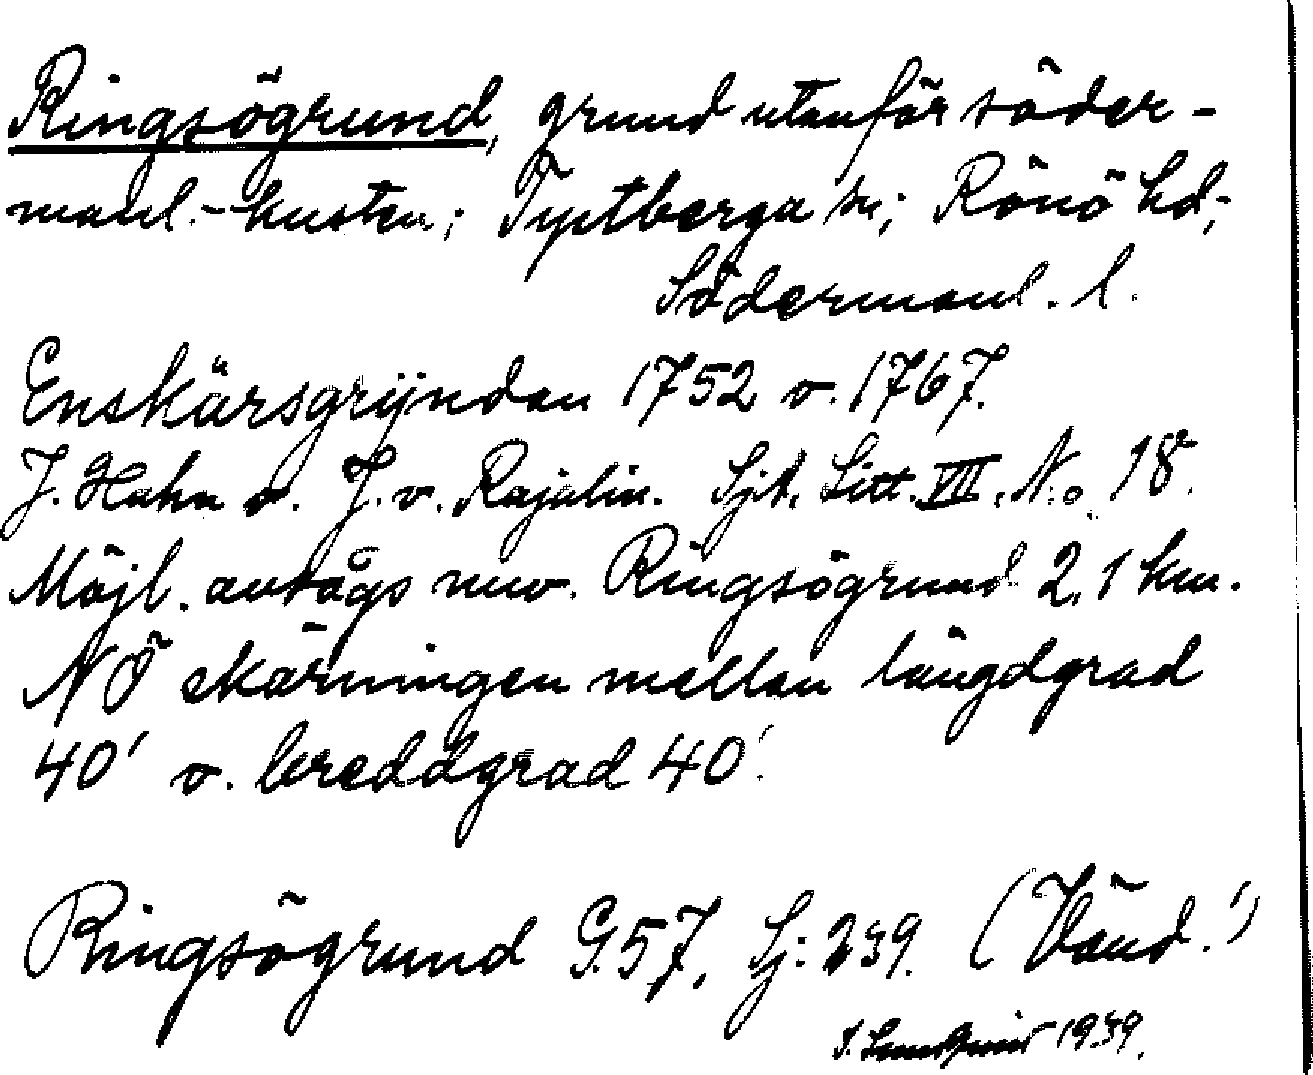 Ringsögrund, grund utanför söder-
manl.-kusten; Tystberga sn; Rönö hd;
Södermanl. l.
Enskärsgrÿndan 1752 o. 1767.
J. Hahn o. J. v. Rajalin. Sjk. Litt. VII. N:o 18.
Möjl. avtågs nuv. Ringsögrund 2,1 km.
NÖ skärningen mellan längdgrad
40' o. breddgrad 40'.
Ringsögrund G.57, Sj: 239. (Vänd!)
1939.